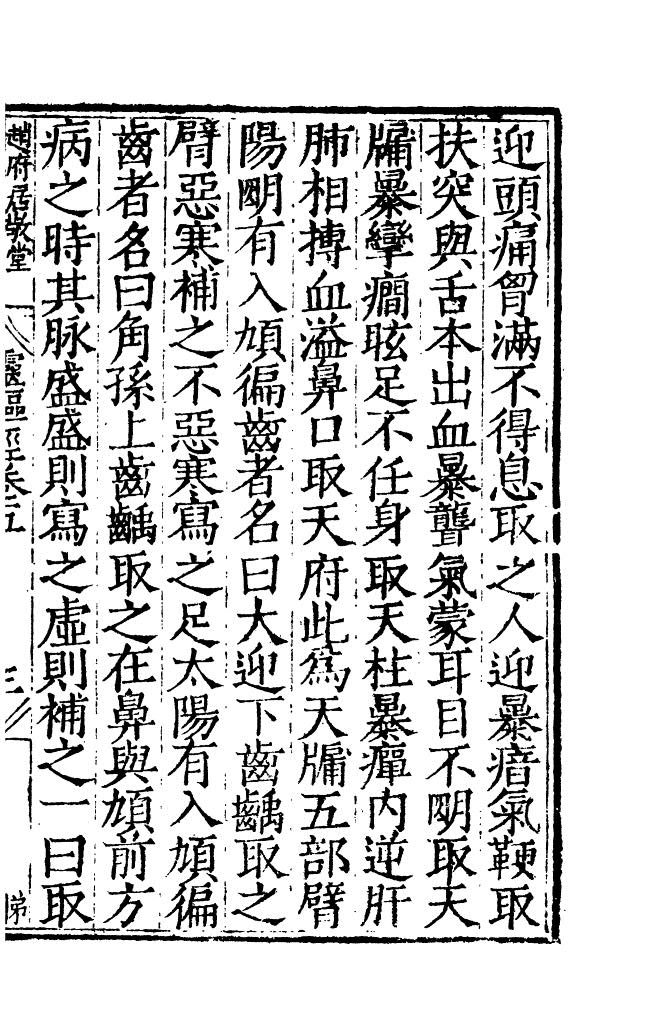 迎頭痛胷滿不得息取之人迎暴瘖氣鞕取
扶突與舌本出血暴聾氣蒙耳目不明取天
牖暴攣癎眩足不任身取天柱暴癉内逆肝
肺相搏血溢鼻口取天府此爲天牖五部臂
陽明有入頄徧齒者名曰大迎下齒齲取之
臂惡寒補之不惡寒寫之足太陽有入頄徧
齒者名曰角孫上齒齲取之在鼻與頄前方
病之時其脉盛盛則寫之虛則補之一曰取
趙府居敬堂
靈樞經卷五
三